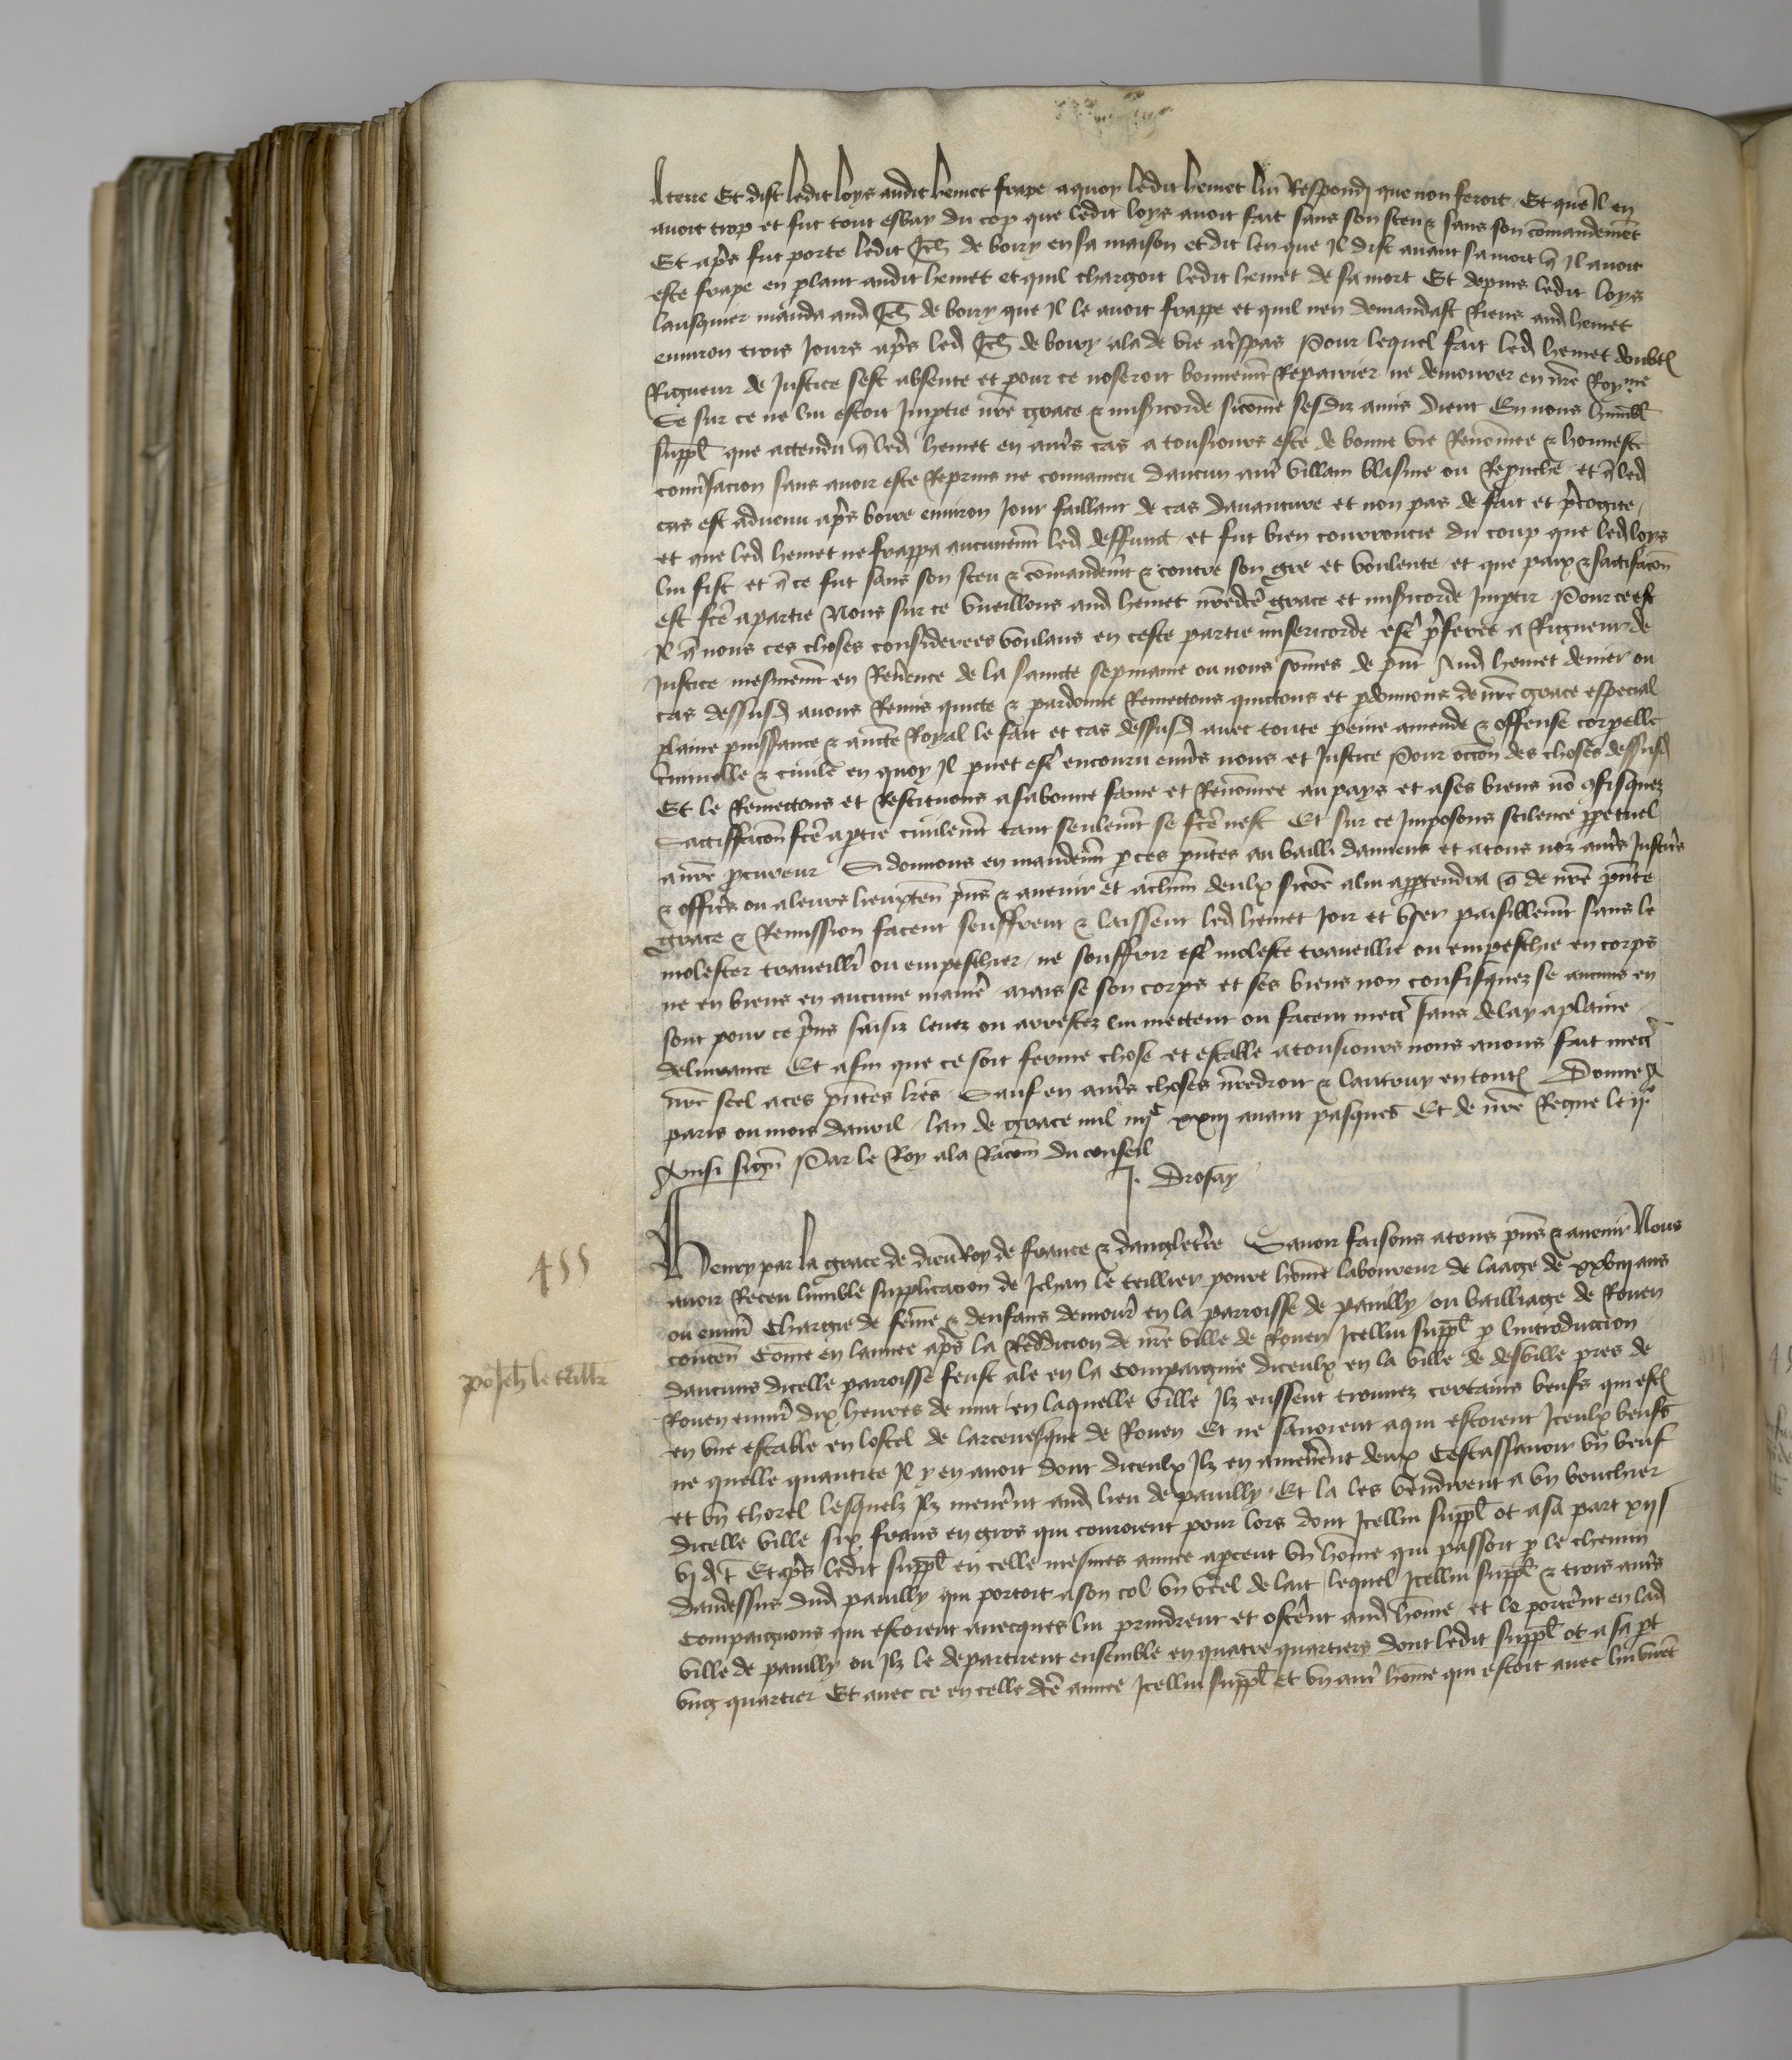 A terre Et dist ledit loys audit hemet frape aquoy ledit hemet lui Respondi que non feroit Et que Il en
avoit trop et fut tout esbay du cop que ledit loys avoit fait sans son sceu & sans son comandemēt
Et apr̃s fut porte ledit Jeh de boury en sa maison et dit len que Il dist avant sa mort q̃ Il avoit
este frape en plant audit hemet et quil chargoit ledit hemet de sa mort Et depuis ledit loys
manda aud Jeh de boury que Il le avoit frappe et quil nen demandast Riens aud hemet
environ trois Jours apr̃s led Jeh de boury ala de vie a trespas Pour lequel fait led hemet doubt
Rigueur de Justice sest absente et pour ce noseroit bonnemt Repairier ne demourer en nr̃e Roy.me
Se sur ce ne lui estoit Imptie nr̃e grace & misericorde sicõme sesdiz amis dient En nous humbl
suppl que attendu q̃ led hemet en autr̃s cas a tousiours este de bonne vie Renõmee & honneste
conu̾sacion sans avoir este Reprins ne convaincu daucun autr̃ villain blasme ou Reprouche et q̃ led
cas est advenu apr̃s boire environ Jour faillant de cas davanture et non pas de fait et p̃cogite
et que led hemet ne frappa aucunemt led deffunct et fut bien courroucie du coup que led loys
lui fist et q̃ ce fut sans son sceu & cõmandemt & contre son gre et voulente et que paix & satisfacon
est fc̃e a partie Nous sur ce vueillons aud hemet nr̃edc̃e grace et misericorde Imptir Pour ce est
Il q̃ nous ces choses considerees voulans en ceste partie misericorde estr̃ p̃feree a Rigueur de
Justice mesmemt en Reũence de la saincte sepmaine ou nous sõmes de p̃nt Aud hemet denier ou
cas dessusd avons Remis quicte & pardonne Remettons quictons et pdonnons de nr̃e grace especial
plaine puissance & auctte Royal le fait et cas dessusd avec toute peine amende & offense corpelle
criminelle & civile en quoy Il puet estr̃ encouru enũs nous et Justice Pour occon des choses dessusd
Et le Remettons et Restituons a sa bonne fame et Renõmee au pays et a ses biens nõ cfisquez
Satisffacon fc̃e a ptie civilemt tant seulemt se fc̃e nest Et sur ce Imposons scilence ppetuel
a nr̃e pcureur Si donnons en mandemt p ces p̃ntes au bailli damiens et a tous noz autr̃s Justic̃rs
& offic̃rs ou a leurs lieuxten p̃ns & avenir et a chm deulx sicõe a lui apptendra q̃ de nr̃e p̃nte
grace & Remission facent seuffrent & laissent led hemet Joir et vser paisiblemt sans le
molester traveillr̃ ou empeschier ne souffrir estr̃ moleste traveillie ou empeschie en corps
ne en biens en aucune manier̃ mais se son corps et ses biens non confisquez se aucuns en
sont pour ce p̃ns saisiz levez ou arrestez lui mettent ou facent mectr̃ sans delay a plaine
delivrance Et afin que ce soit ferme chose et estable a tousiours nous avons fait mectr̃
nr̃e seel a ces p̃ntes lr̃es Sauf en autr̃s choses nr̃e droit & lautruy en tout Donne A
paris ou mois davril lan de grace mil iiijc xxiij avant pasques Et de nr̃e Regne le ije
Ainsi signe Par le Roy a la Racõn du conseil
J. Drosay
Henry par la grace de dieu Roy de france & dangleterre Savoir faisons a tous p̃ns & avenir Nous
avoir Receu lumble supplicacion de Jehan le teillier povre hõme laboureur de laage de xxviij ans
ou environ Chargie de fẽme & denfans demour̃ en la parroisse de paiully ou bailliage de Rouen
conten Cõme en lannee apr̃s la Reddicion de nr̃e ville de Rouen Icellui suppl p lintroduccion
daucuns dicelle parroisse feust ale en la Compaignie diceulx en la ville de desville pres de
Rouen environ dix heures de nuit en laquelle ville Ilz eussent trouvez certains beufs qui est
en vne estable en lostel de larcevesque de Rouen Et ne savoient a qui estoient Iceulx beufs
ne quelle quantite Il y en avoit dont diceulx Ilz en amenerẽt deux Cestassavoir vn beuf
et vn thorel lesquelz Ilz menerẽt aud lieu de paiully Et la les vendirent a vn bouchier
dicelle ville six frans en gros qui couroient pour lors dont Icellui suppl ot a sa part xijs
vj d t Et apr̃s ledit suppl en celle mesmes annee apceut vn hõme qui passoit p le chemin
daudessus dud paiully qui portoit a son col vn veel de lait lequel Icellui suppl & trois autr̃s
Compaignons qui estoient avecques lui prindrent et osterẽt aud hõme et le porterẽt en lad
ville de paiully ou Ilz le departirent ensemble en quatre quartiers dont ledit suppl ot a sa pt
vng quartier Et avec ce en celle dc̃e annee Icellui suppl et vn autr̃ hõme qui estoit avec lui
455
po Jeh le teillr